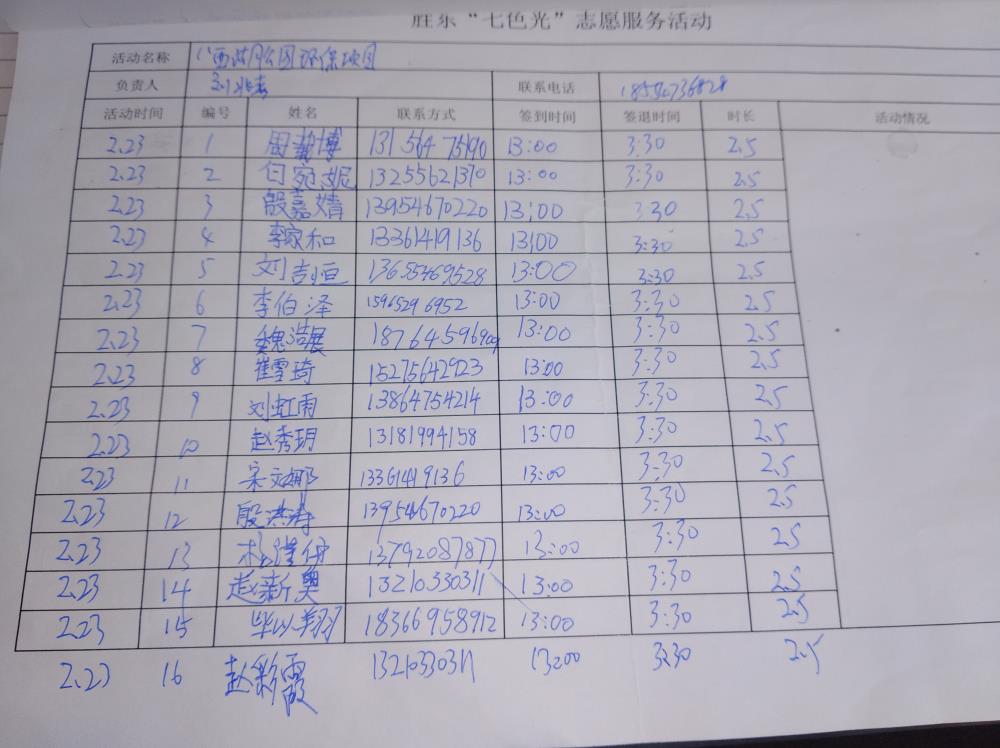 胜东“七色光”志愿服务活动
活动名称 西湖公园环保项目
负责人 联系电话
活动时间 编号 姓名 联系方式 签到时间 签退时间 时长 活动情况
2.23 1 周瀚博 13:00 3:30 2.5
2.23 2 宛妮 13255621370 13:00 3:30 2.5
2.23 3 殷嘉婧 13954670220 13:00 3:30 2.5
2.23 4 李家和 13361419136 13:00 3:30 2.5
2.23 5 刘吉恒 13655469528 13:00 3:30 2.5
2.23 6 李伯泽 1596529 6952 13:00 3:30 2.5
2.23 7 魏浩展 13:00 3:30 2.5
2.23 8 崔雪琦 15275642923 13:00 3:30 2.5
2.23 9 刘虹雨 13864754214 13:00 3:30 2.5
2.23 10 赵秀玥 13181994158 13:00 3:30 2.5
2.23 11 宋文娜 13361419136 13:00 3:30 2.5
2.23 12 殷洪涛 13954670220 13:00 3:30 2.5
2.23 13 13792087877 13:00 3:30 2.5
2.23 14 赵新奥 13210330311 13:00 3:30 2.5
2.23 15 毕以翔 18366958912 13:00 3:30 2.5
2.23 16 赵彩霞 13210330311 13:00 3:30 2.5